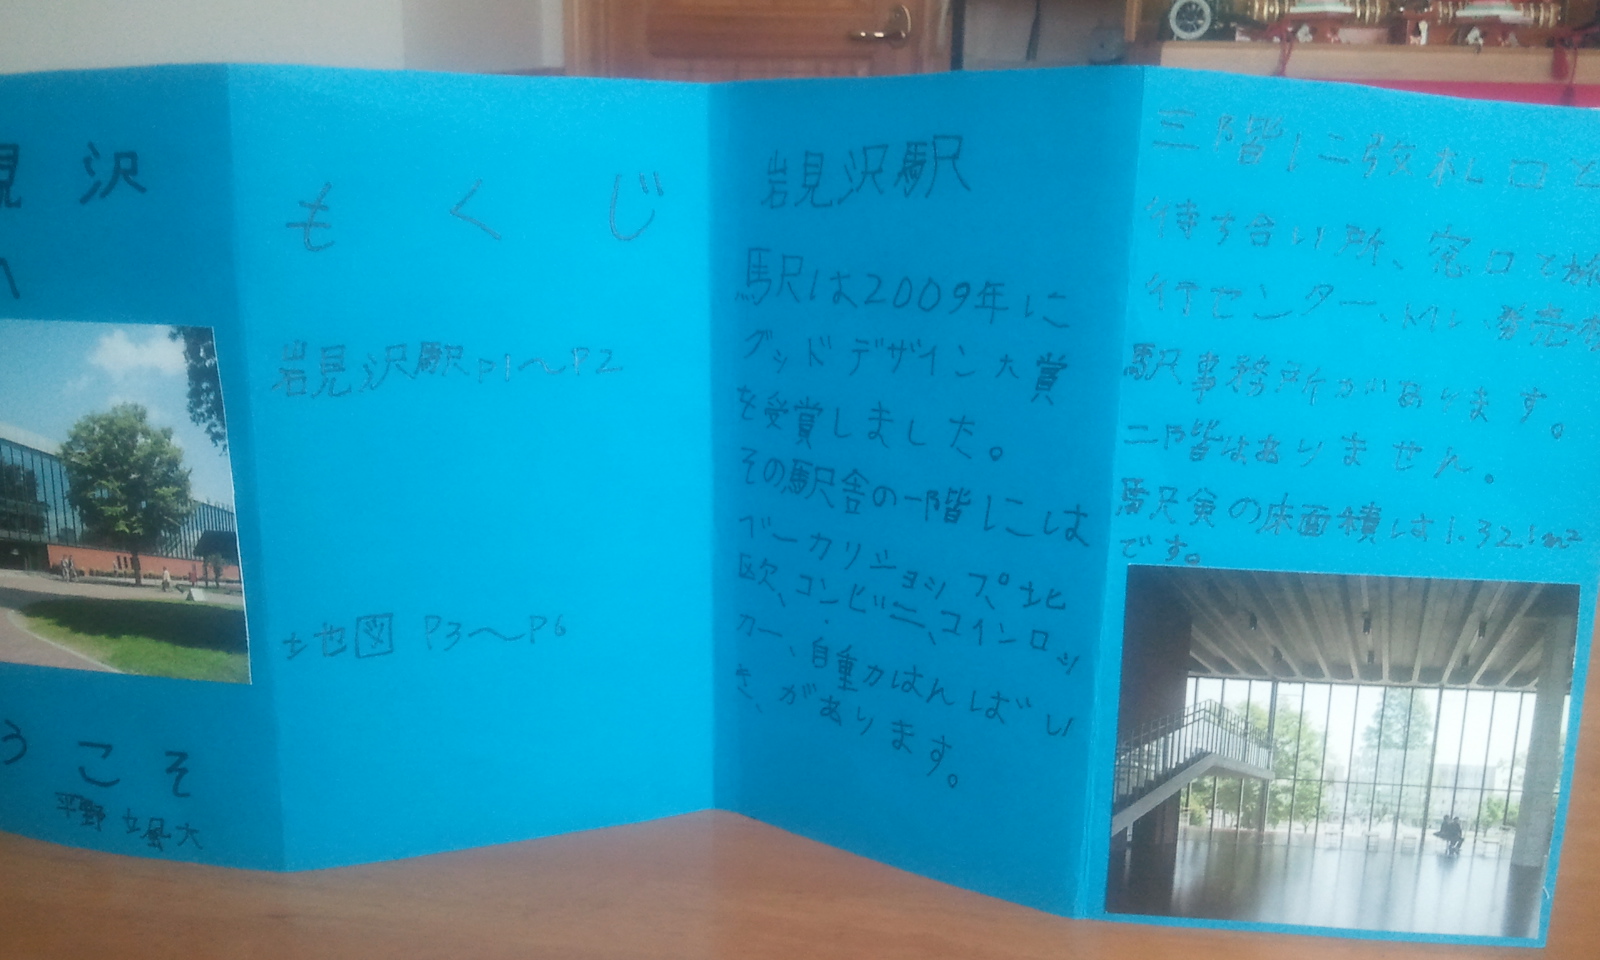 見 沢
へ
うこそ
平野 颯大
もくじ
岩見沢駅P1〜P2
地図 P3〜P6
岩見沢駅
駅は2009年に
グッドデザイン大賞
を受賞しました。
その駅舎の一階には
ベーカリショップ、北
欧、コンビニ、コインロッ
カー、自動はんばい
き、があります。
三階に改札口と
待ち合い所、窓口と旅
行センター、発売
駅事務所があります。
二階はありません。
の床面積は1.321m²
です。